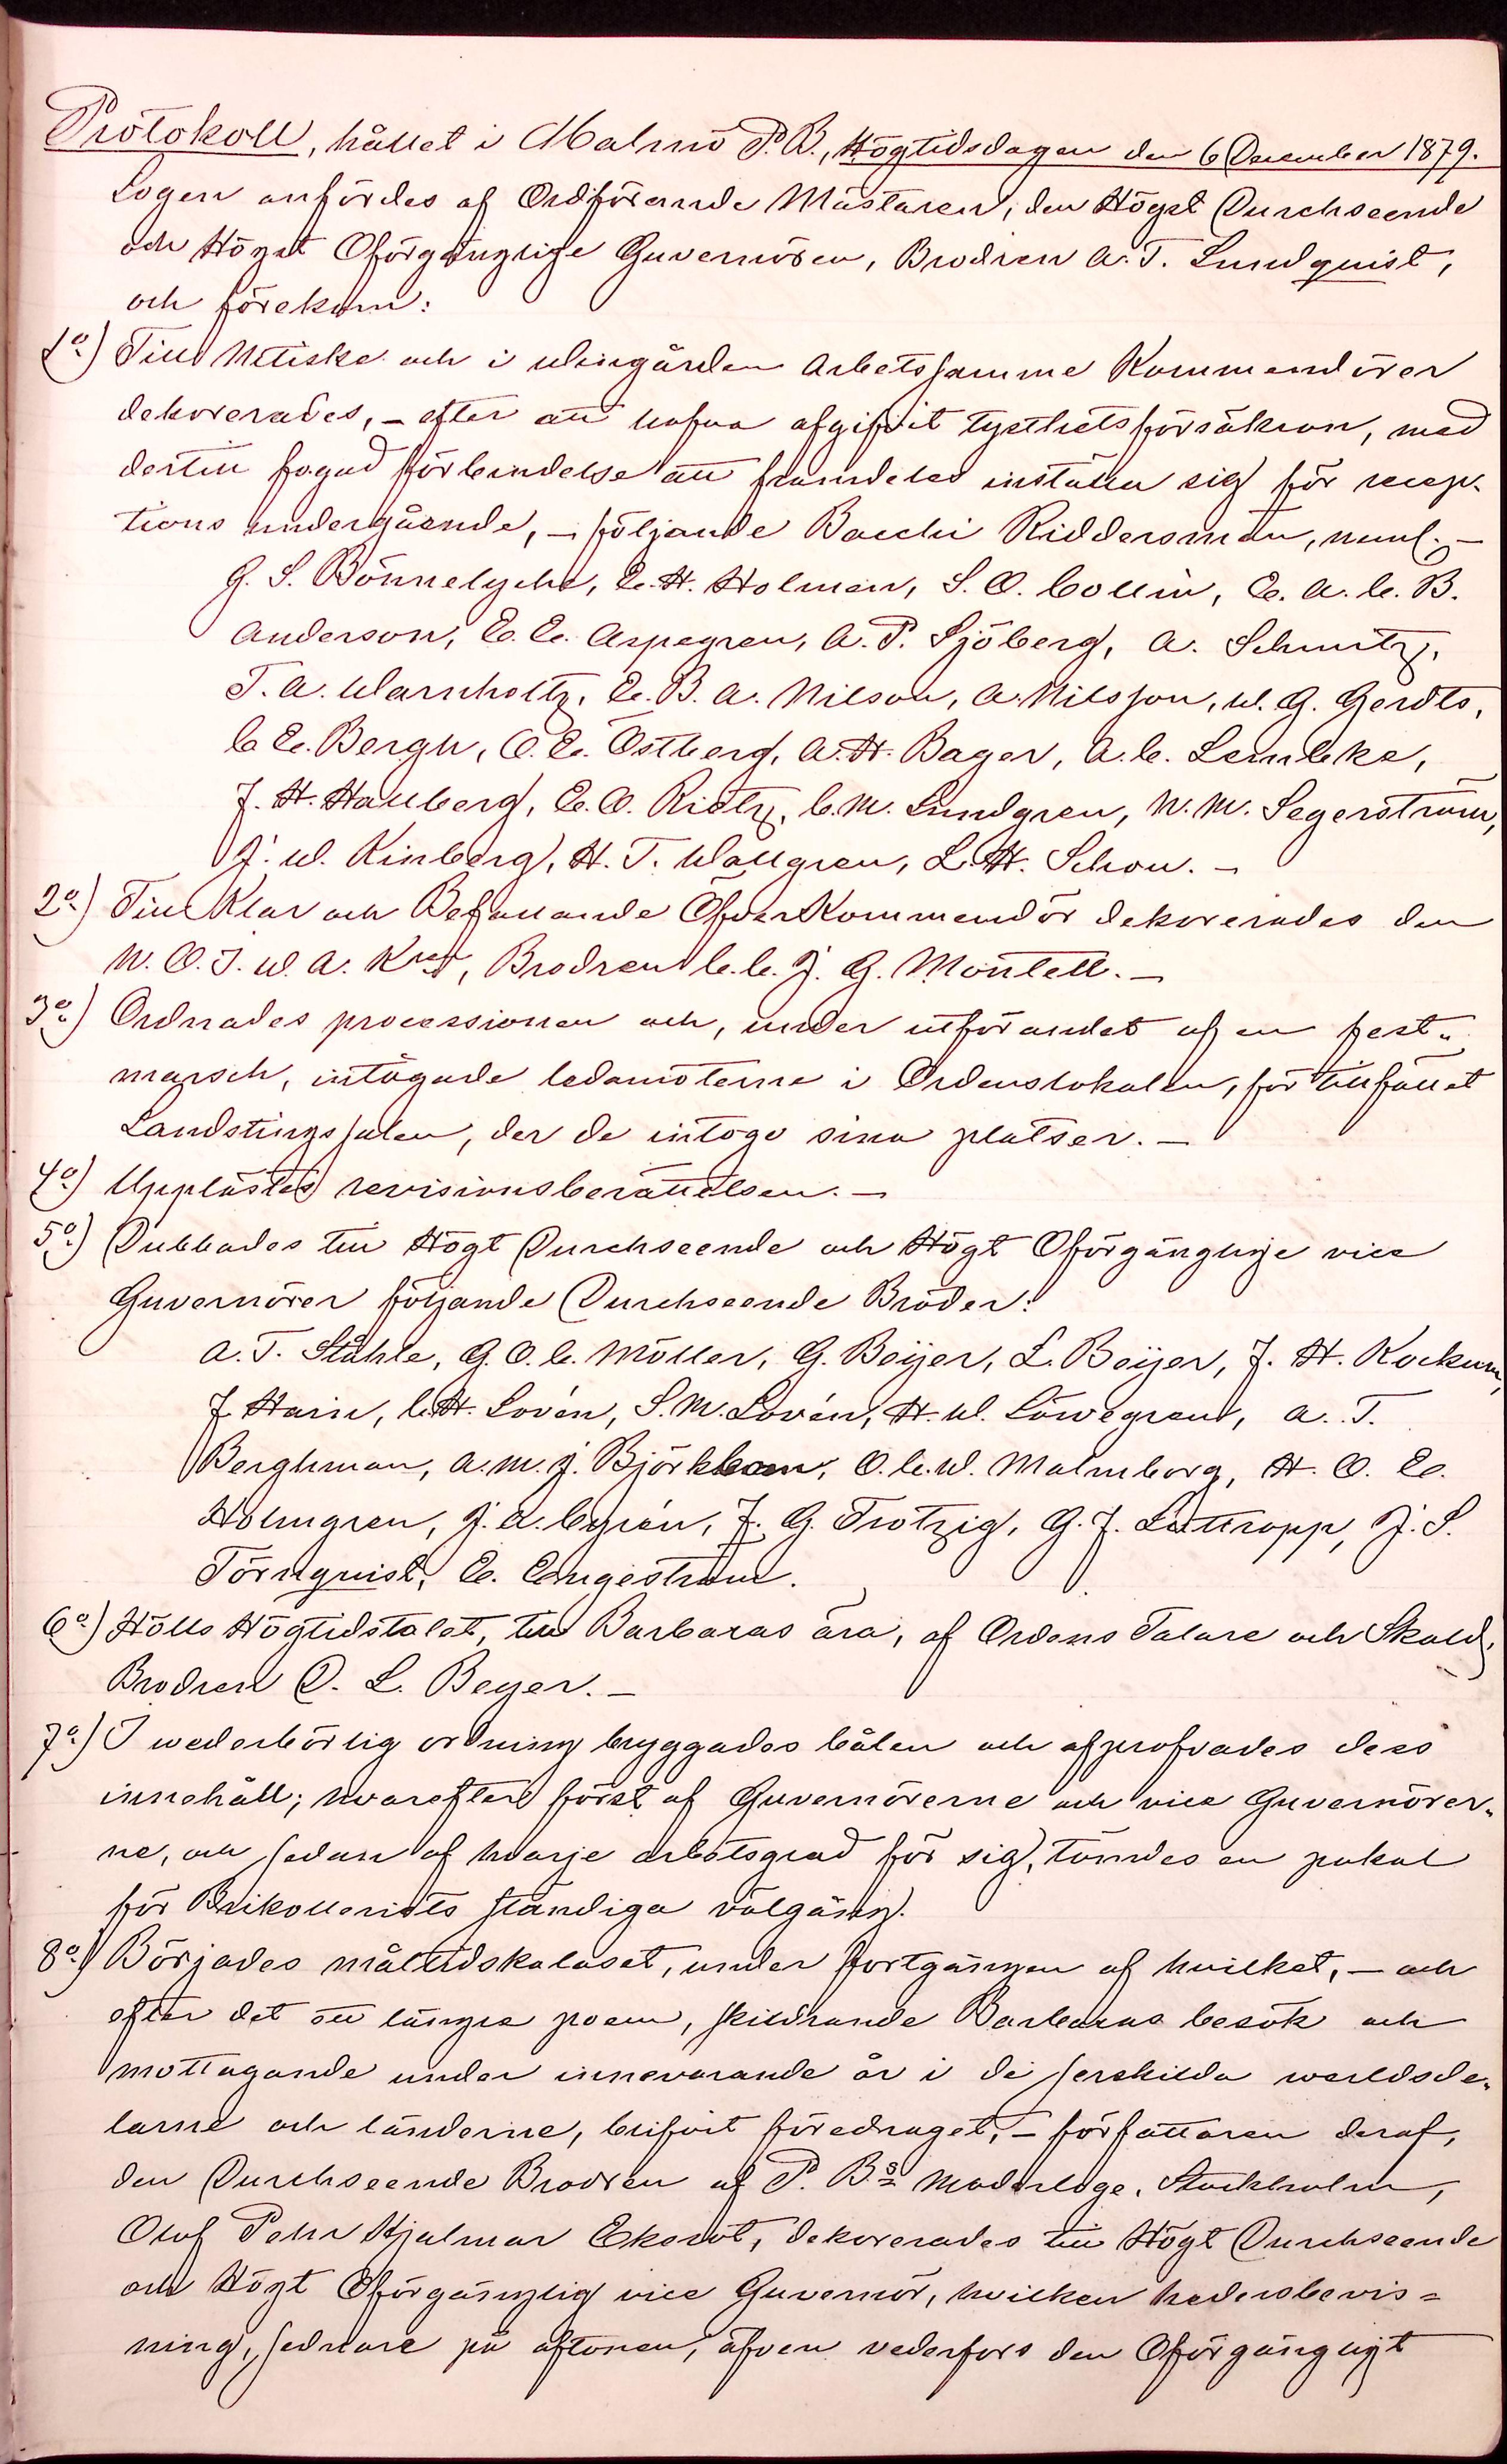 Protokoll, hållet i Malmö P. B., Högtidsdagen den 6 December 1879.
Logen anfördes af Ordförande Mästaren, den Högst Durchseende
och Högst Oförgänglige Guvernören, Brodren A. T. Lundquist,
och förekom:
1o.) Till Nitiske och i wingården arbetssamme Kommendörer
dekorerades, – efter att hafva afgifvit tysthetsförsäkran, med
dertill fogad förbindelse att framdeles inställa sig för recep-
tions undergående, – följande Bacchi Riddersmän, neml. –
G. S. Bönnelyche, E. H. Holmén, S. O. Collin, C. A. C. B.
Anderson, E. E. Aspegren, A. P. Sjöberg, A. Schmitz,
T. A. Warnholtz, E. B. A. Nilson, A. Nilsson, W. G. Gerdts,
C. E. Bergh, O. E. Östberg, A. H. Bager, A. C. Lembke,
J. H. Hallberg, E. O. Rietz, C. M. Lundgren, N. M. Segerström,
J. W. Kinberg, H. T. Wallgren, L. H. Schou. –
2o.) Till Klar och Befallande Öfver Kommendör dekorerades den
N. O. I. W. A. Kren, Brodren C. C. J. G. Montell. –
3o.) Ordnades processionen och, under utförandet af en fest-
marsch, intågade ledamöterne i Ordenslokalen, för tillfället
Landstingssalen, der de intogo sina platser. –
4o.) Upplästes revisionsberättelsen. –
5o.) Dubbades till Högt Durchseende och Högt Oförgänglige vice
Guvernörer följande Durchseende Bröder:
A. T. Ståhle, G. O. C. Möller, G. Beijer, L. Beijer, F. H. Kockum,
J. Hain, C. H. Lovén, S. M. Lovén, H. W. Löwegren, A. T.
Berghman, A. M. J. Björkbom, O. C. W. Malmborg, H. O. E.
Holmgren, J. A. Cygrén, F. G. Trotzig, G. F. Lüttropp, J. S.
Törnquist, E. Engeström.
6o.) Hölls Högtidstalet, till Barbaras ära, af Ordens Talare och Skald,
Brodren D. L. Beyer. –
7o.) I wederbörlig ordning bryggades bålen och afprofvades dess
innehåll; hvarefter först af Guvernörerne och vice Guvernörer-
ne, och sedan af hvarje arbetsgrad för sig, tömdes en pokal
för Brikollerists ständiga välgång.
8o.) Börjades måltidskalaset, under fortgången af hvilket, – och
efter det ett längre poem, skildrande Barbaras besök och
mottagande under innevarande år i de serskilda werldsde-
larne och länderne, blifvit föredraget, – författaren deraf,
den Durchseende Brodren af P. Bs Moderloge, Stockholm,
Olof Pehr Hjalmar Eksröt, dekorerades till Högt Durchseende
och Högt Oförgänglig vice Guvernör, hvilken hedersbevis-
ning, sednare på aftonen, äfven vederfors den Oförgängligt